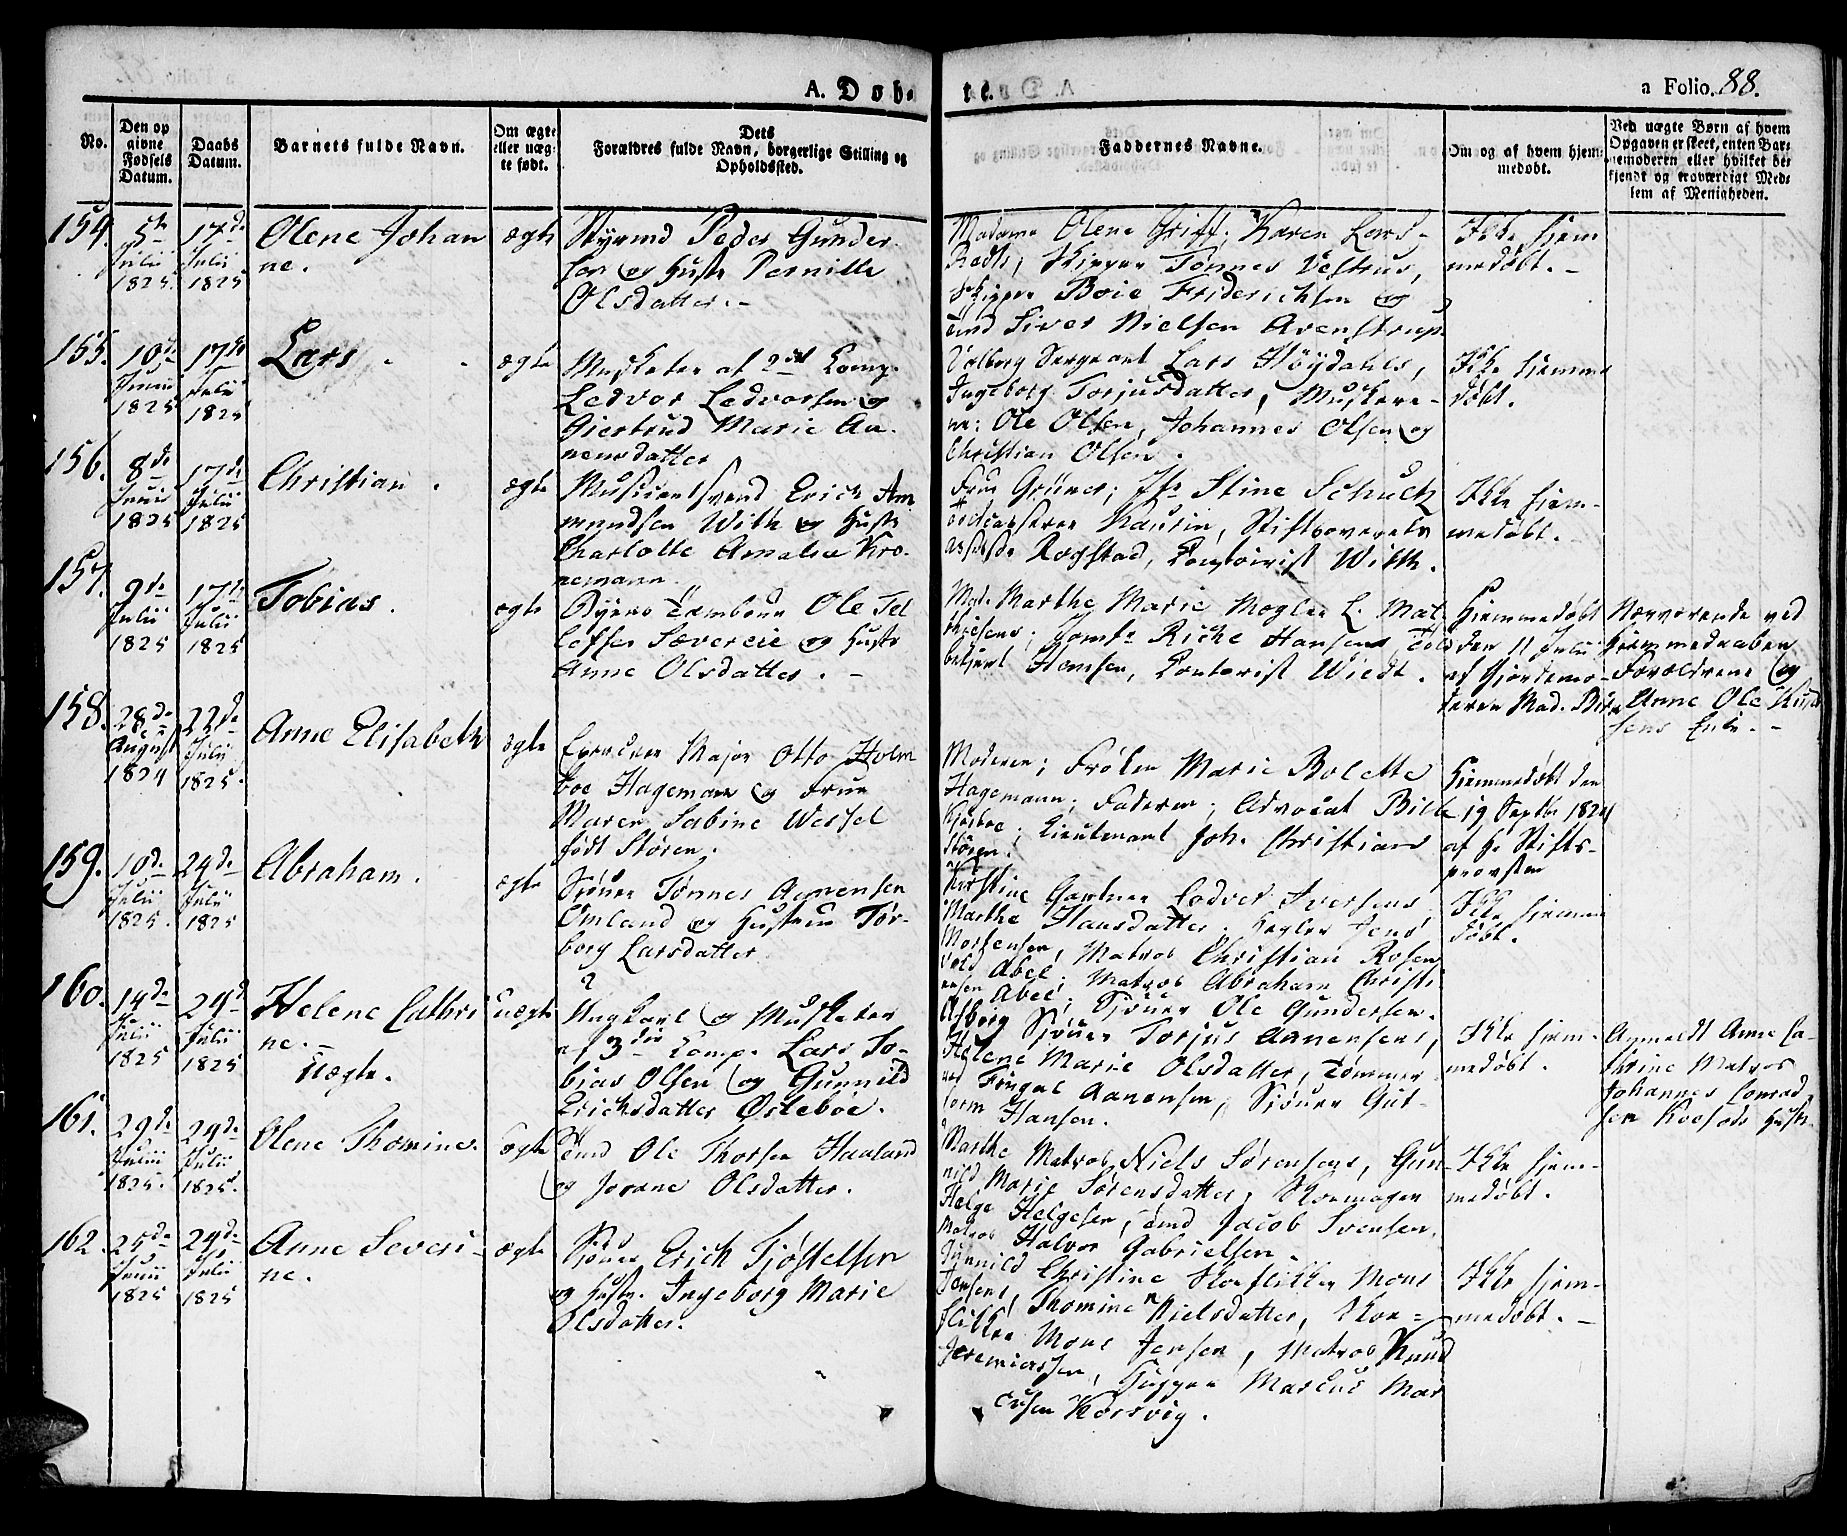 A. Døbte.
a Folio. 88.
No.
Den opgivne Fødsels Datum.
Daabs Datum.
Barnets fulde Navn.
Om ægte eller uægte født.
Dets Forældres fulde Navn, borgerlige Stilling og Opholdssted.
Faddernes Navne.
Om og af hvem hjemmedøbt.
Ved uægte Børn af hvem
Opgaven er skeet, enten Bar-
nemoderen eller hvilket be-
kjendt og troværdigt Med-
lem af Menigheden.
154.
5te Julii 1825.
17de Julii 1825
Olene Johan
ne.
ægte
Styrmd Peder Gunder-
sen og Hustr Pernille
Olsdatter. -
Madame Olene Griff; Karen Lars
Skipper Tønnes Vestrus,
Skipper Boie Friderichsen og
Tmd Siver Nielsen Avenstrup
Ikke hjem
medøbt. -
155.
10de Junii 1825
17de Julii 1825
Lars
ægte
Musketer af 2det Komp.
Ledvor Ledvorsen og
Giertrud Marie Aa-
nensdatter
Valborg Sergeant Lars Høydahls,
Ingeborg Torjusdatter, Muskete-
re: Ole Olsen, Johannes Olsen og
Christian Olsen.
Ikke hjemme
døbt.
156.
8de Junii 1825
17de Julii 1825
Christian.
ægte
Musicantsvend Erich Am
mundsen With og Hustr
Charlotte Amalia Kro-
nemann.
Frue Grüner; Jfr Stine Schultz
Kaurin, Stiftsoverrets
Rogstad, Contoirist With.
Ikke hjem-
medøbt.
157.
9de Julii 1825
17de Julii 1825
Tobias.
ægte
Byens Tambour Ole Tel
lefsen Sævereie og Hustr
Anne Olsdatter. -
Mad. Marthe Marie Mogler L. Mat
thiesens; Jomfr Riche Hansens, Told
betjent Hemsen, Contorist Wiedt.
Hjemmedøbt
den 11 Julii
af Gjordemo-
deren Mad.
Nærværende ved
Hjemmedaaben
Forældrene og
Anne Ole
sens Enke. -
158.
28de August 1824
22de Julii 1825.
Anne Elisabeth
ægte
Major Otto Holm
boe Hagemann og Frue
Maren Sabine Wessel
født Støren.
Moderen; Frøken Marie Bolette
Hagemann; Faderen; Advocat Bille
Kjørboe; Lieutenant Joh. Christian
Støren.
Hjemmedøbt den
19 Septbr 1824
af Hr Stifts-
provsten
159.
10de Julii 1825.
24de Julii 1825
Abraham.
ægte
Sjøuer Tønnes Aanensen
Omland og Hustru Tor-
borg Larsdatter
Kirstine Gartner Ledver Iversens,
Marthe Hansdatter. Jens
Mortensen, Matros Christian Rosen
vold Abel; Matros Abraham Christi
ensen Abel; Sjøuer Ole Gundersen.
Ikke hjemme
døbt.
160.
14de Julii 1825
24de Julii 1825
Helene Cathri
ne. -
Uægte.
uægte
Ungkarl og Musketer
af 3die Komp. Lars To-
bias Olsen og Gunnild
Erichsdatter Østebøe.
Asborg Sjøuer Torjus Aanensens,
Helene Marie Olsdatter, Tømmer
Fingal Aanensen, Sjøuer Gut-
torm Hansen.
Ikke hjem-
medøbt.
Anmeldt Anne Ca-
thrine Matros
Johannes Conrad
sen Hustr.
161.
29de Julii 1825.
24de Julii 1825.
Olene Thomine.
ægte
Tmd Ole Thorsen Haaland
og Jorane Olsdatter.
Marthe Matros Niels Sørensens, Gun-
nild Marie Sørensdatter, Skoemager
Helge Helgesen, Tmd Jacob Svensen,
Matros Halvor Gabrielsen.
Ikke hjem-
medøbt.
162.
25de Junii 1825
24de Julii 1825
Anne Severi-
ne.
ægte
Sjøuer Erich Tjøstelsen
og Hustr. Ingeborg Marie
Olsdatter.
Gunnild Christine Skoeflikker Mons
Jensens, Thomine Nielsdatter, Skoe-
flikker Mons Jensen, Matros Knud
Jeremiassen, Marcus Mar
cusen Korsvig.
Ikke hjem-
medøbt. -